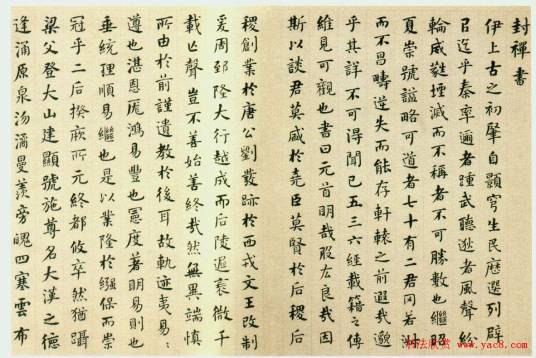 封禪書
伊上古之初肇自顥穹生民歷選列辟
以迄乎秦率邇者踵武聽逖者風聲紛
輪威蕤堙滅而不稱者不可勝數也繼昭
夏崇號謚略可道者七十有二君罔若淑
而不昌疇逆失而能存軒轅之前遐哉邈
乎其詳不可得聞已五三六經載籍之傳
維見可觀也書曰元首明哉股肱良哉因
斯以談君莫盛於堯臣莫賢於后稷后
稷創業於唐公劉發跡於西戎文王改制
爰周郅隆大行越成而后陵遲衰微千
載亡聲豈不善始善終哉然無異端慎
所由於前謹遺教於後耳故軌迹夷易
遵也湛恩厖鴻易豐也憲度著明易則也
垂統理順易繼也是以業隆於繈保而崇
冠乎二后揆厥所元終都攸卒然猶躡
梁父登大山建顯號施尊名大漢之德
逢涌原泉沕潏曼羨旁魄四塞雲布
书法欣赏 www.yac8.com